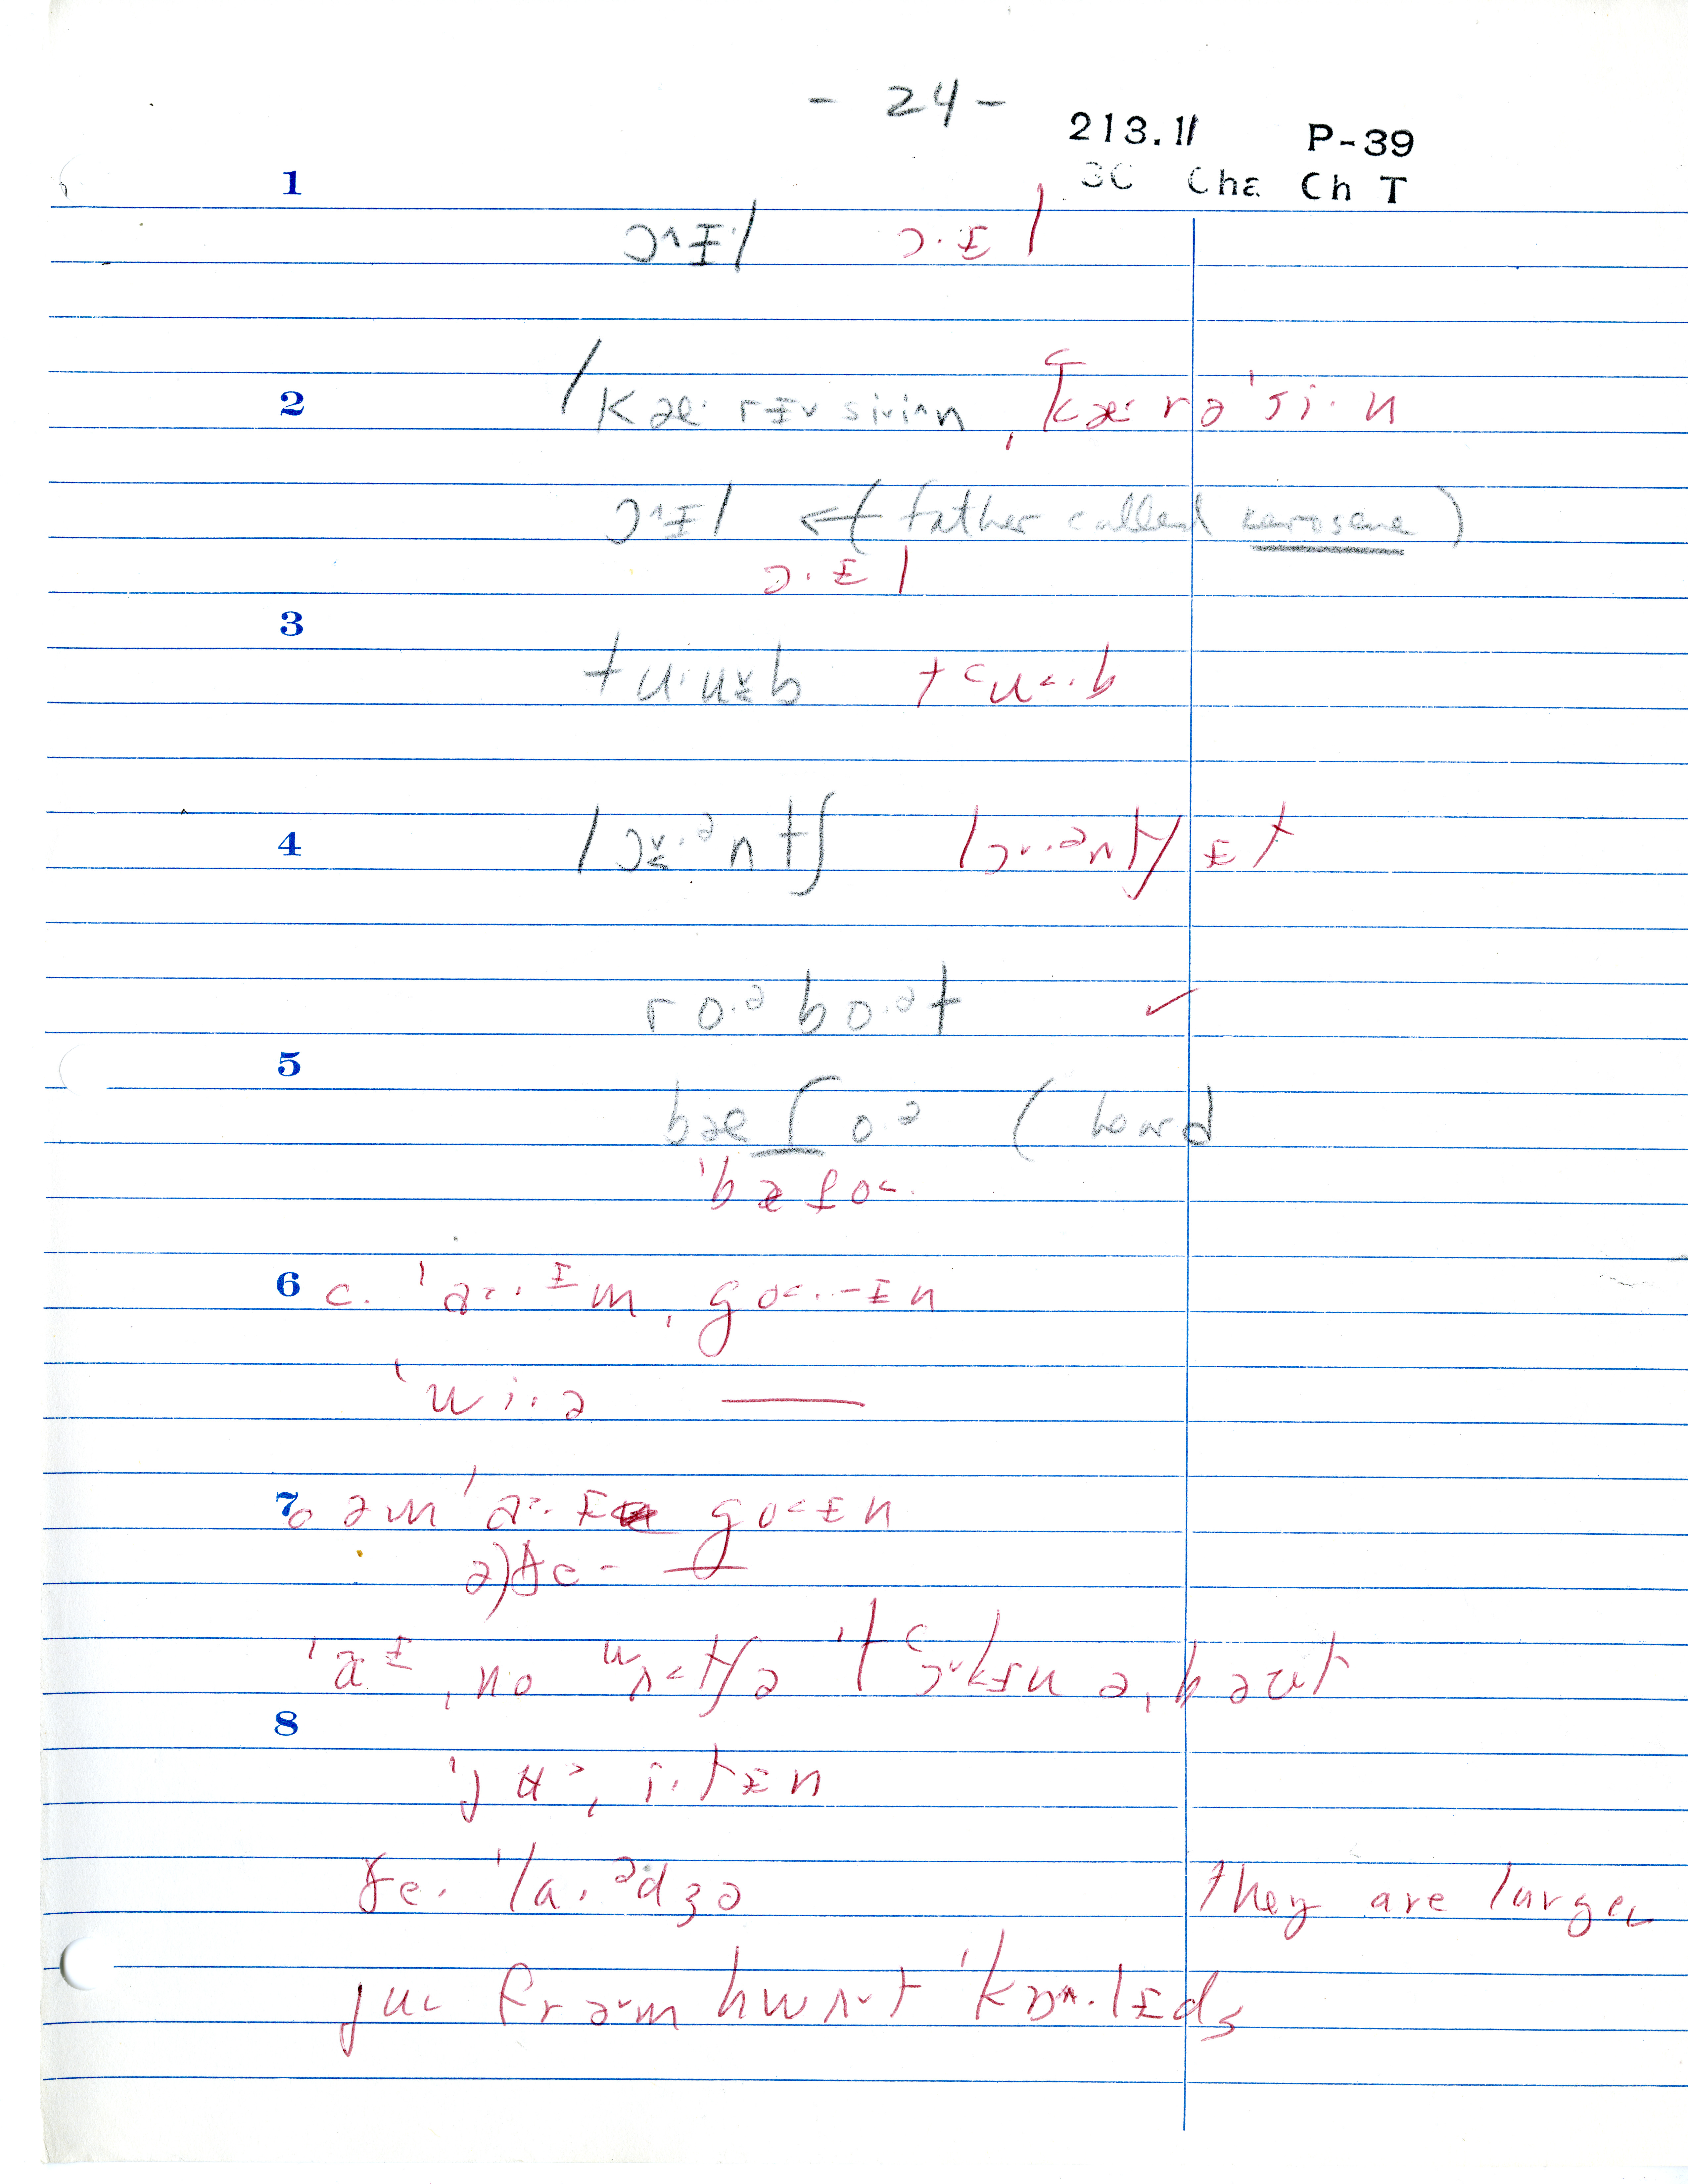 - 24 -
213.11 P-39
3C Cha Ch T
1
ɔ^ɪl ɔ·ɪl
2 /kæ· rɪv si·ɪ^n , k꜀æ· rə ˈsi· n
ɔ^ɪl ← ( father called kerosene )
ɔ·ɪl
3
tu·ʉb t꜀u<·b
4 lɔ·ᵊntʃ lɔv·ᵊntʃ ɪt
ro·ᵊ bo·ᵊt ✓
5
bæ ſ o·ᵊ ( heard
ˈbæfo<·
6 c. ˈa<·ɪm, go<·-ɪn
ˈwi·ə —
7 o əm ˈa·ɪ go<ɪn
ə)ðe - —
ˈaɪ , no wʌ<tʃə ˈt꜀ɔvkɪn ə, bəut
8
ˈjʉ>, i·tɪn
ðe· ˈla·ᵊdʒə they are larger
ju< frəvm hwʌvt ˈkɒ^·lɪdʒ